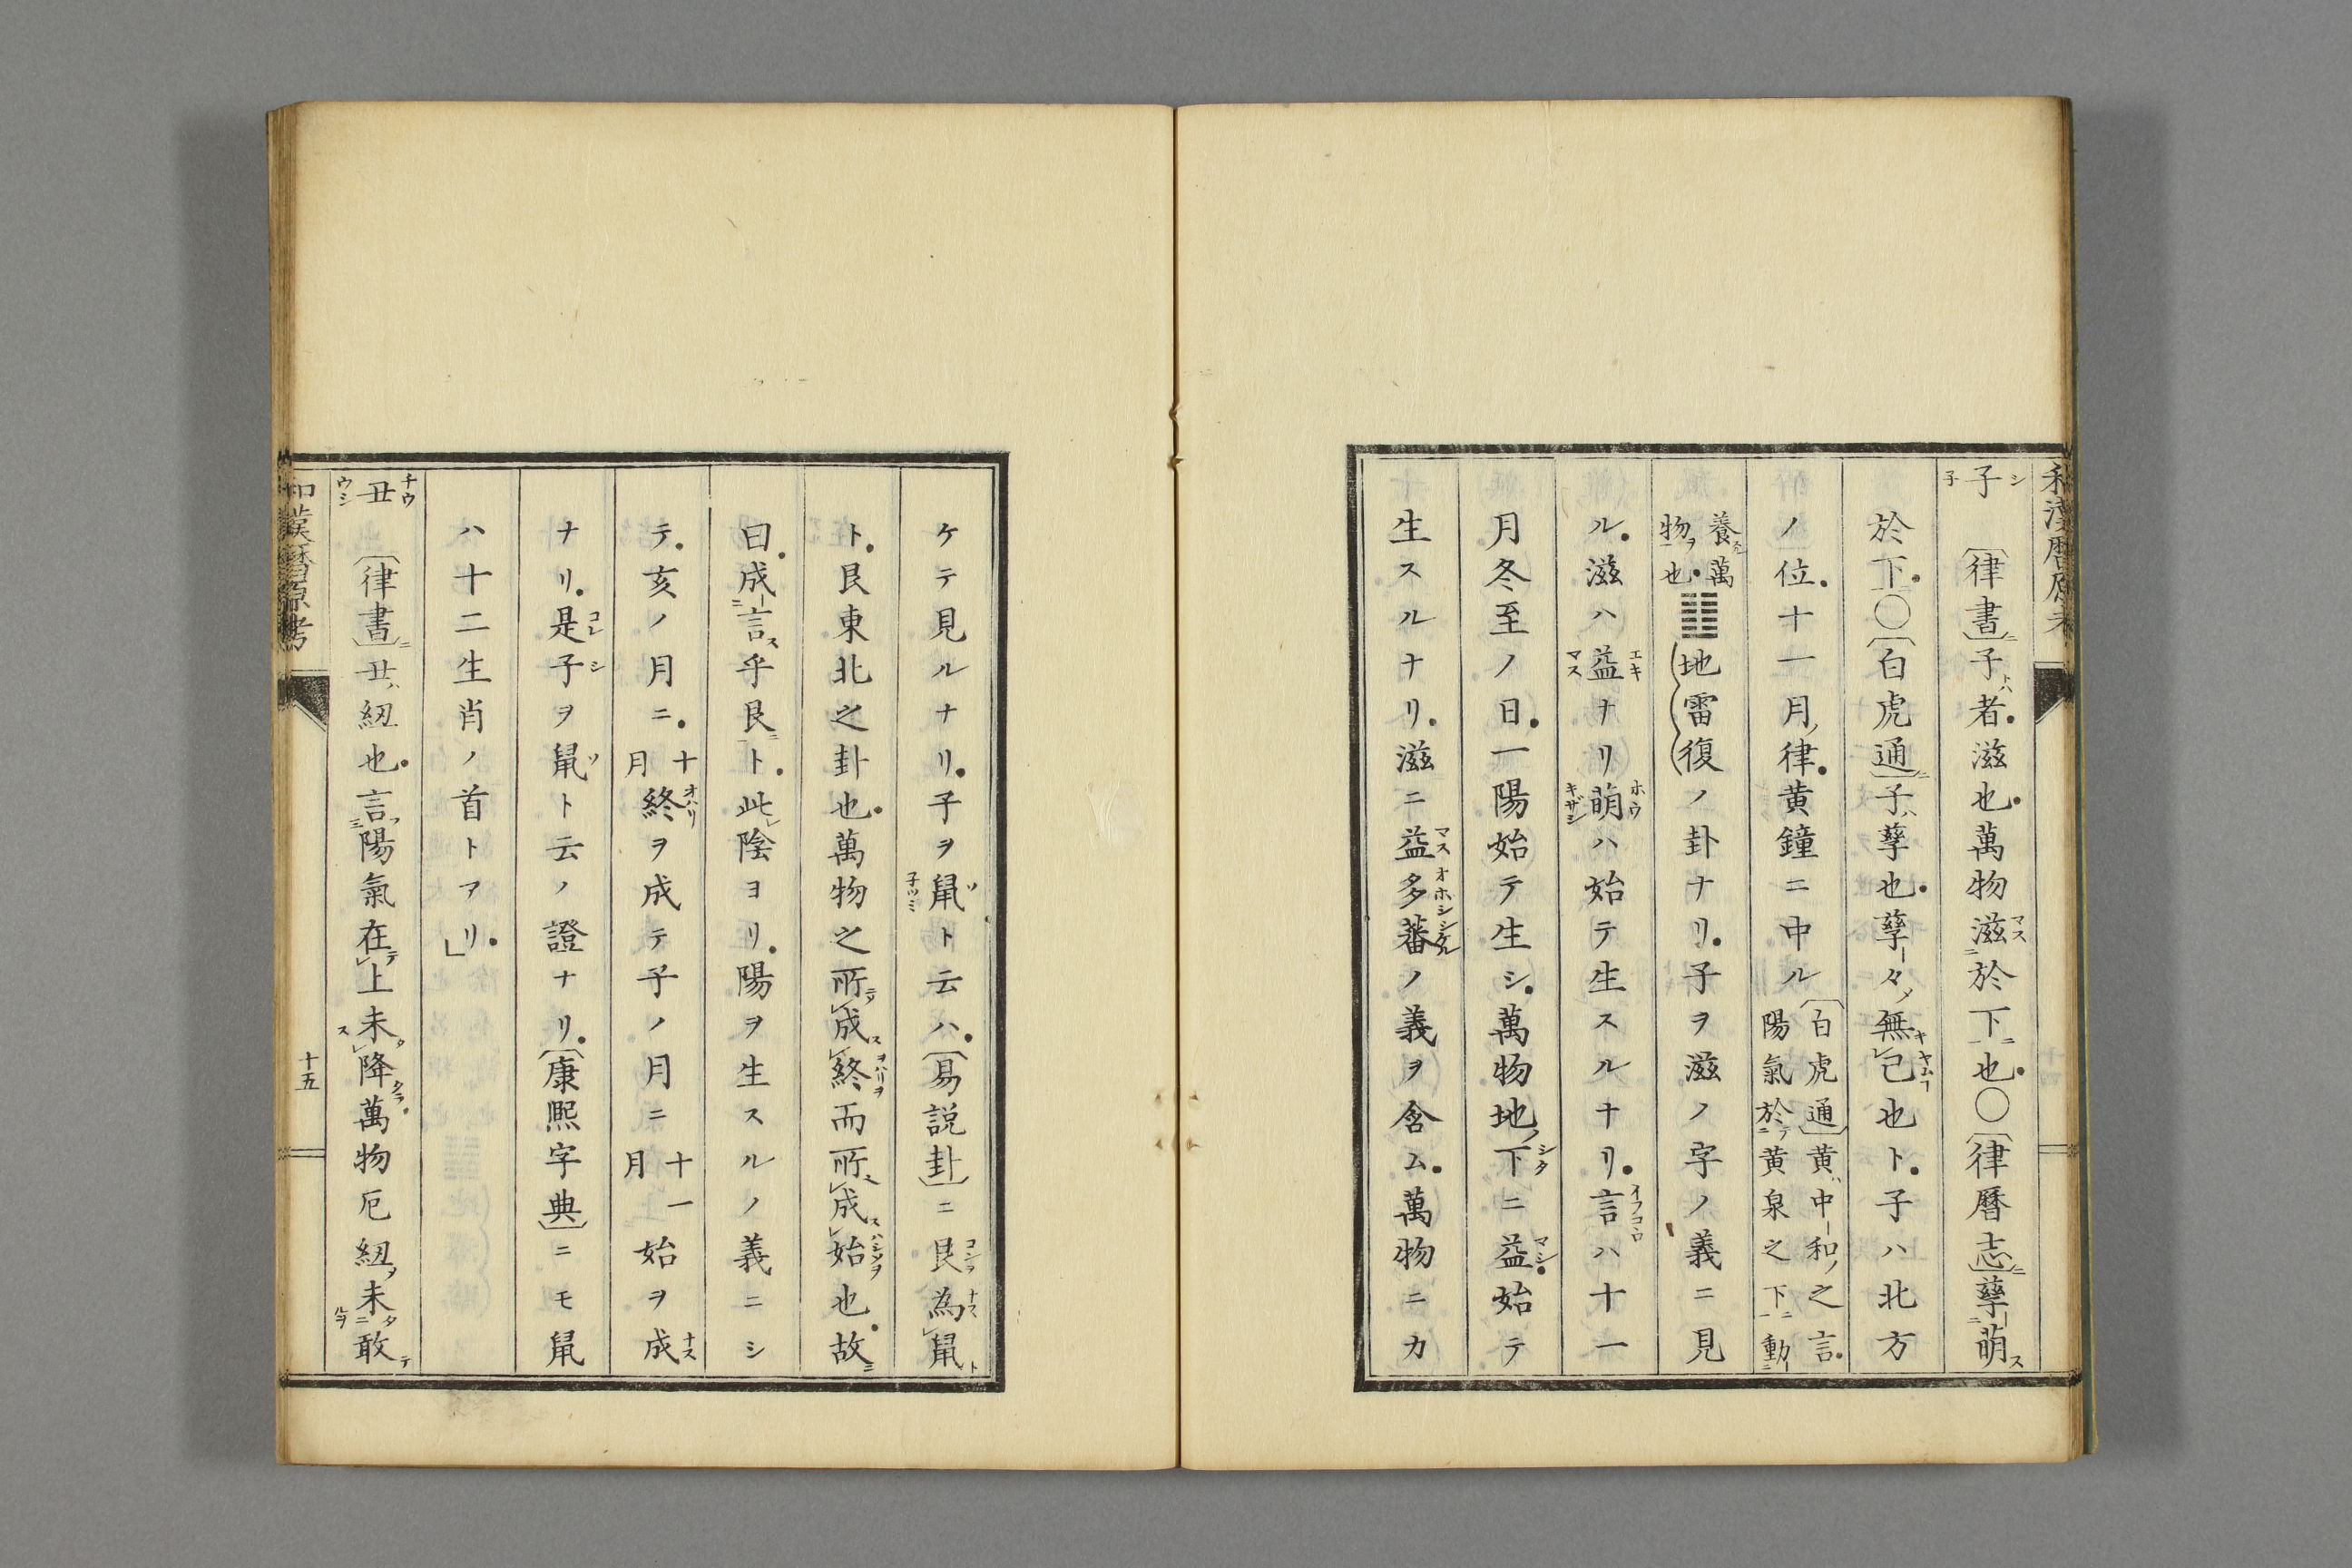 和漢暦原考
子 〔律書〕子者滋也萬物滋於下也〇〔律曆志〕孳萌
於下〇〔白虎通〕子孳也孳々無已也ト子ハ北方
ノ位十一月律黄鐘ニ中ル〔白虎通〕黄中和之言陽氣於黄泉之下動
養萬物也䷗地雷復ノ卦ナリ子ヲ滋ノ字ノ義ニ見
ル滋ハ益ナリ萌ハ始テ生スルナリ言ハ十一
月冬至ノ日一陽始テ生シ萬物地下ニ益始テ
生スルナリ滋ニ益多蕃ノ義ヲ含ム萬物ニカ
ケテ見ルナリ子ヲ鼠ト云ハ〔易説卦〕ニ艮為鼠
ト艮東北之卦也萬物之所成終而所成始也故
曰成言乎艮ト此陰ヨリ陽ヲ生スルノ義ニシ
テ亥ノ月ニ十月終ヲ成テ子ノ月ニ十一月始ヲ成
ナリ是子ヲ鼠ト云ノ證ナリ〔康熙字典〕ニモ鼠
ハ十二生肖ノ首トアリ」
丑 〔律書〕丑紐也言陽氣在上未降萬物厄紐未敢
和漢暦原考
十五